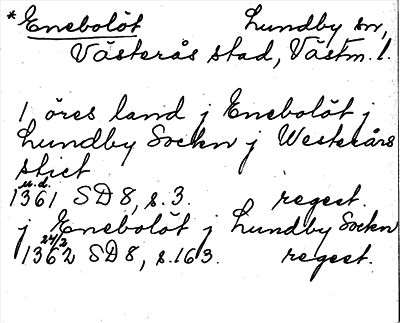 *Enebolöt Lundby sn,
Västerås stad, Västm. l.
1 öres land j Enebolöt j
Lundby Sockn j Westerårs
stict
u.d.
1361 SD 8, s. 3. regest.
j Enebolöt j Lundby Sockn
24/2
1362 SD 8, s. 163. regest.